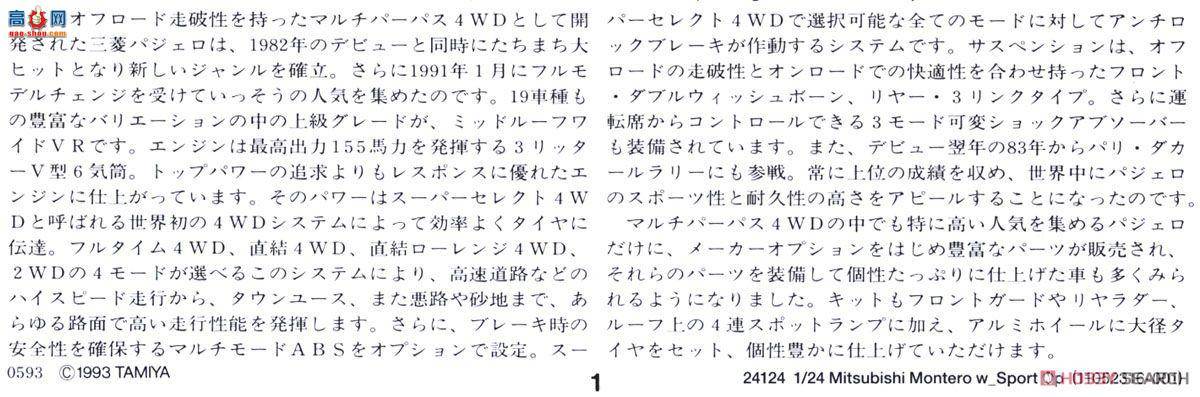 高岡网
オフロード走破性を持ったマルチパーパス４ＷＤとして開
発された三菱パジェロは、1982年のデビューと同時にたちまち大
ヒットとなり新しいジャンルを確立。さらに1991年１月にフルモ
デルチェンジを受けていっそうの人気を集めたのです。19車種も
の豊富なバリエーションの中の上級グレードが、ミッドルーフワ
イドＶＲです。エンジンは最高出力155馬力を発揮する３リッタ
ーＶ型６気筒。トップパワーの追求よりもレスポンスに優れたエ
ンジンに仕上がっています。そのパワーはスーパーセレクト４Ｗ
Ｄと呼ばれる世界初の４ＷＤシステムによって効率よくタイヤに
伝達。フルタイム４ＷＤ、直結４ＷＤ、直結ローレンジ４ＷＤ、
２ＷＤの４モードが選べるこのシステムにより、高速道路などの
ハイスピード走行から、タウンユース、また悪路や砂地まで、あ
らゆる路面で高い走行性能を発揮します。さらに、ブレーキ時の
安全性を確保するマルチモードＡＢＳをオプションで設定。スー
パーセレクト４ＷＤで選択可能な全てのモードに対してアンチロ
ックブレーキが作動するシステムです。サスペンションは、オフ
ロードの走破性とオンロードでの快適性を合わせ持ったフロント
・ダブルウィッシュボーン、リヤー・３リンクタイプ。さらに運
転席からコントロールできる３モード可変ショックアブソーバー
も装備されています。また、デビュー翌年の83年からパリ・ダカ
ールラリーにも参戦。常に上位の成績を収め、世界中にパジェロ
のスポーツ性と耐久性の高さをアピールすることになったのです。
マルチパーパス４ＷＤの中でも特に高い人気を集めるパジェロ
だけに、メーカーオプションをはじめ豊富なパーツが販売され、
それらのパーツを装備して個性たっぷりに仕上げた車も多くみら
れるようになりました。キットもフロントガードやリヤラダー、
ルーフ上の４連スポットランプに加え、アルミホイールに大径タ
イヤをセット、個性豊かに仕上げていただけます。
0593 ©1993 TAMIYA
1
24124 1/24 Mitsubishi Montero w_Sport Op (11052316-001)
HOBBY SEARCH